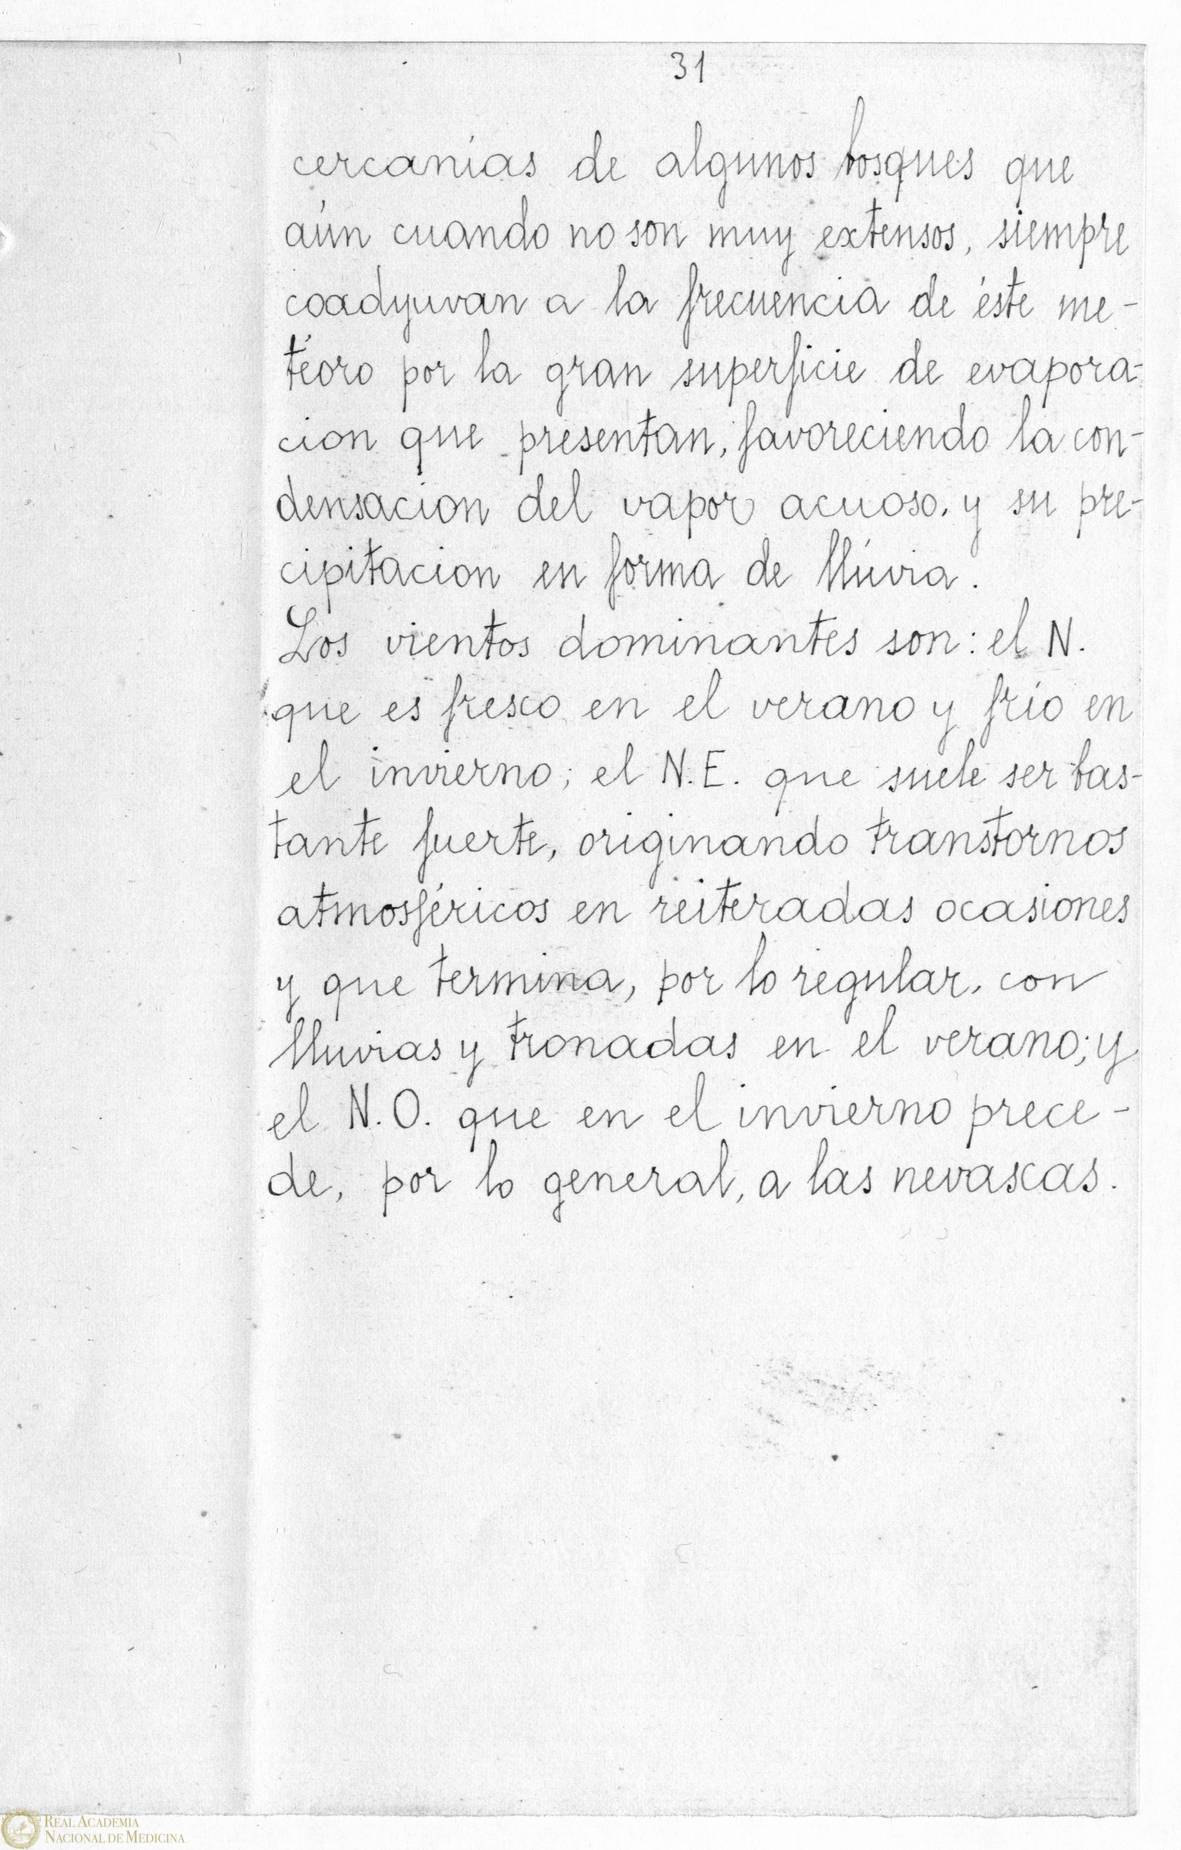 31
cercanías de algunos bosques que
aún cuando no son muy extensos, siempre
coadyuvan a la frecuencia de éste me-
téoro por la gran superficie de evapora-
cion que presentan, favoreciendo la con-
densacion del vapor acuoso, y su pre-
cipitacion en forma de llúvia.
Los vientos dominantes son: el N.
que es fresco en el verano y frio en
el invierno; el N.E. que suele ser bas-
tante fuerte, originando transtornos
atmosféricos en reiteradas ocasiones
y que termina, por lo regular, con
lluvias y tronadas en el verano; y
el N.O. que en el invierno prece-
de, por lo general, a las nevascas.
REAL ACADEMIA
NACIONAL DE MEDICINA